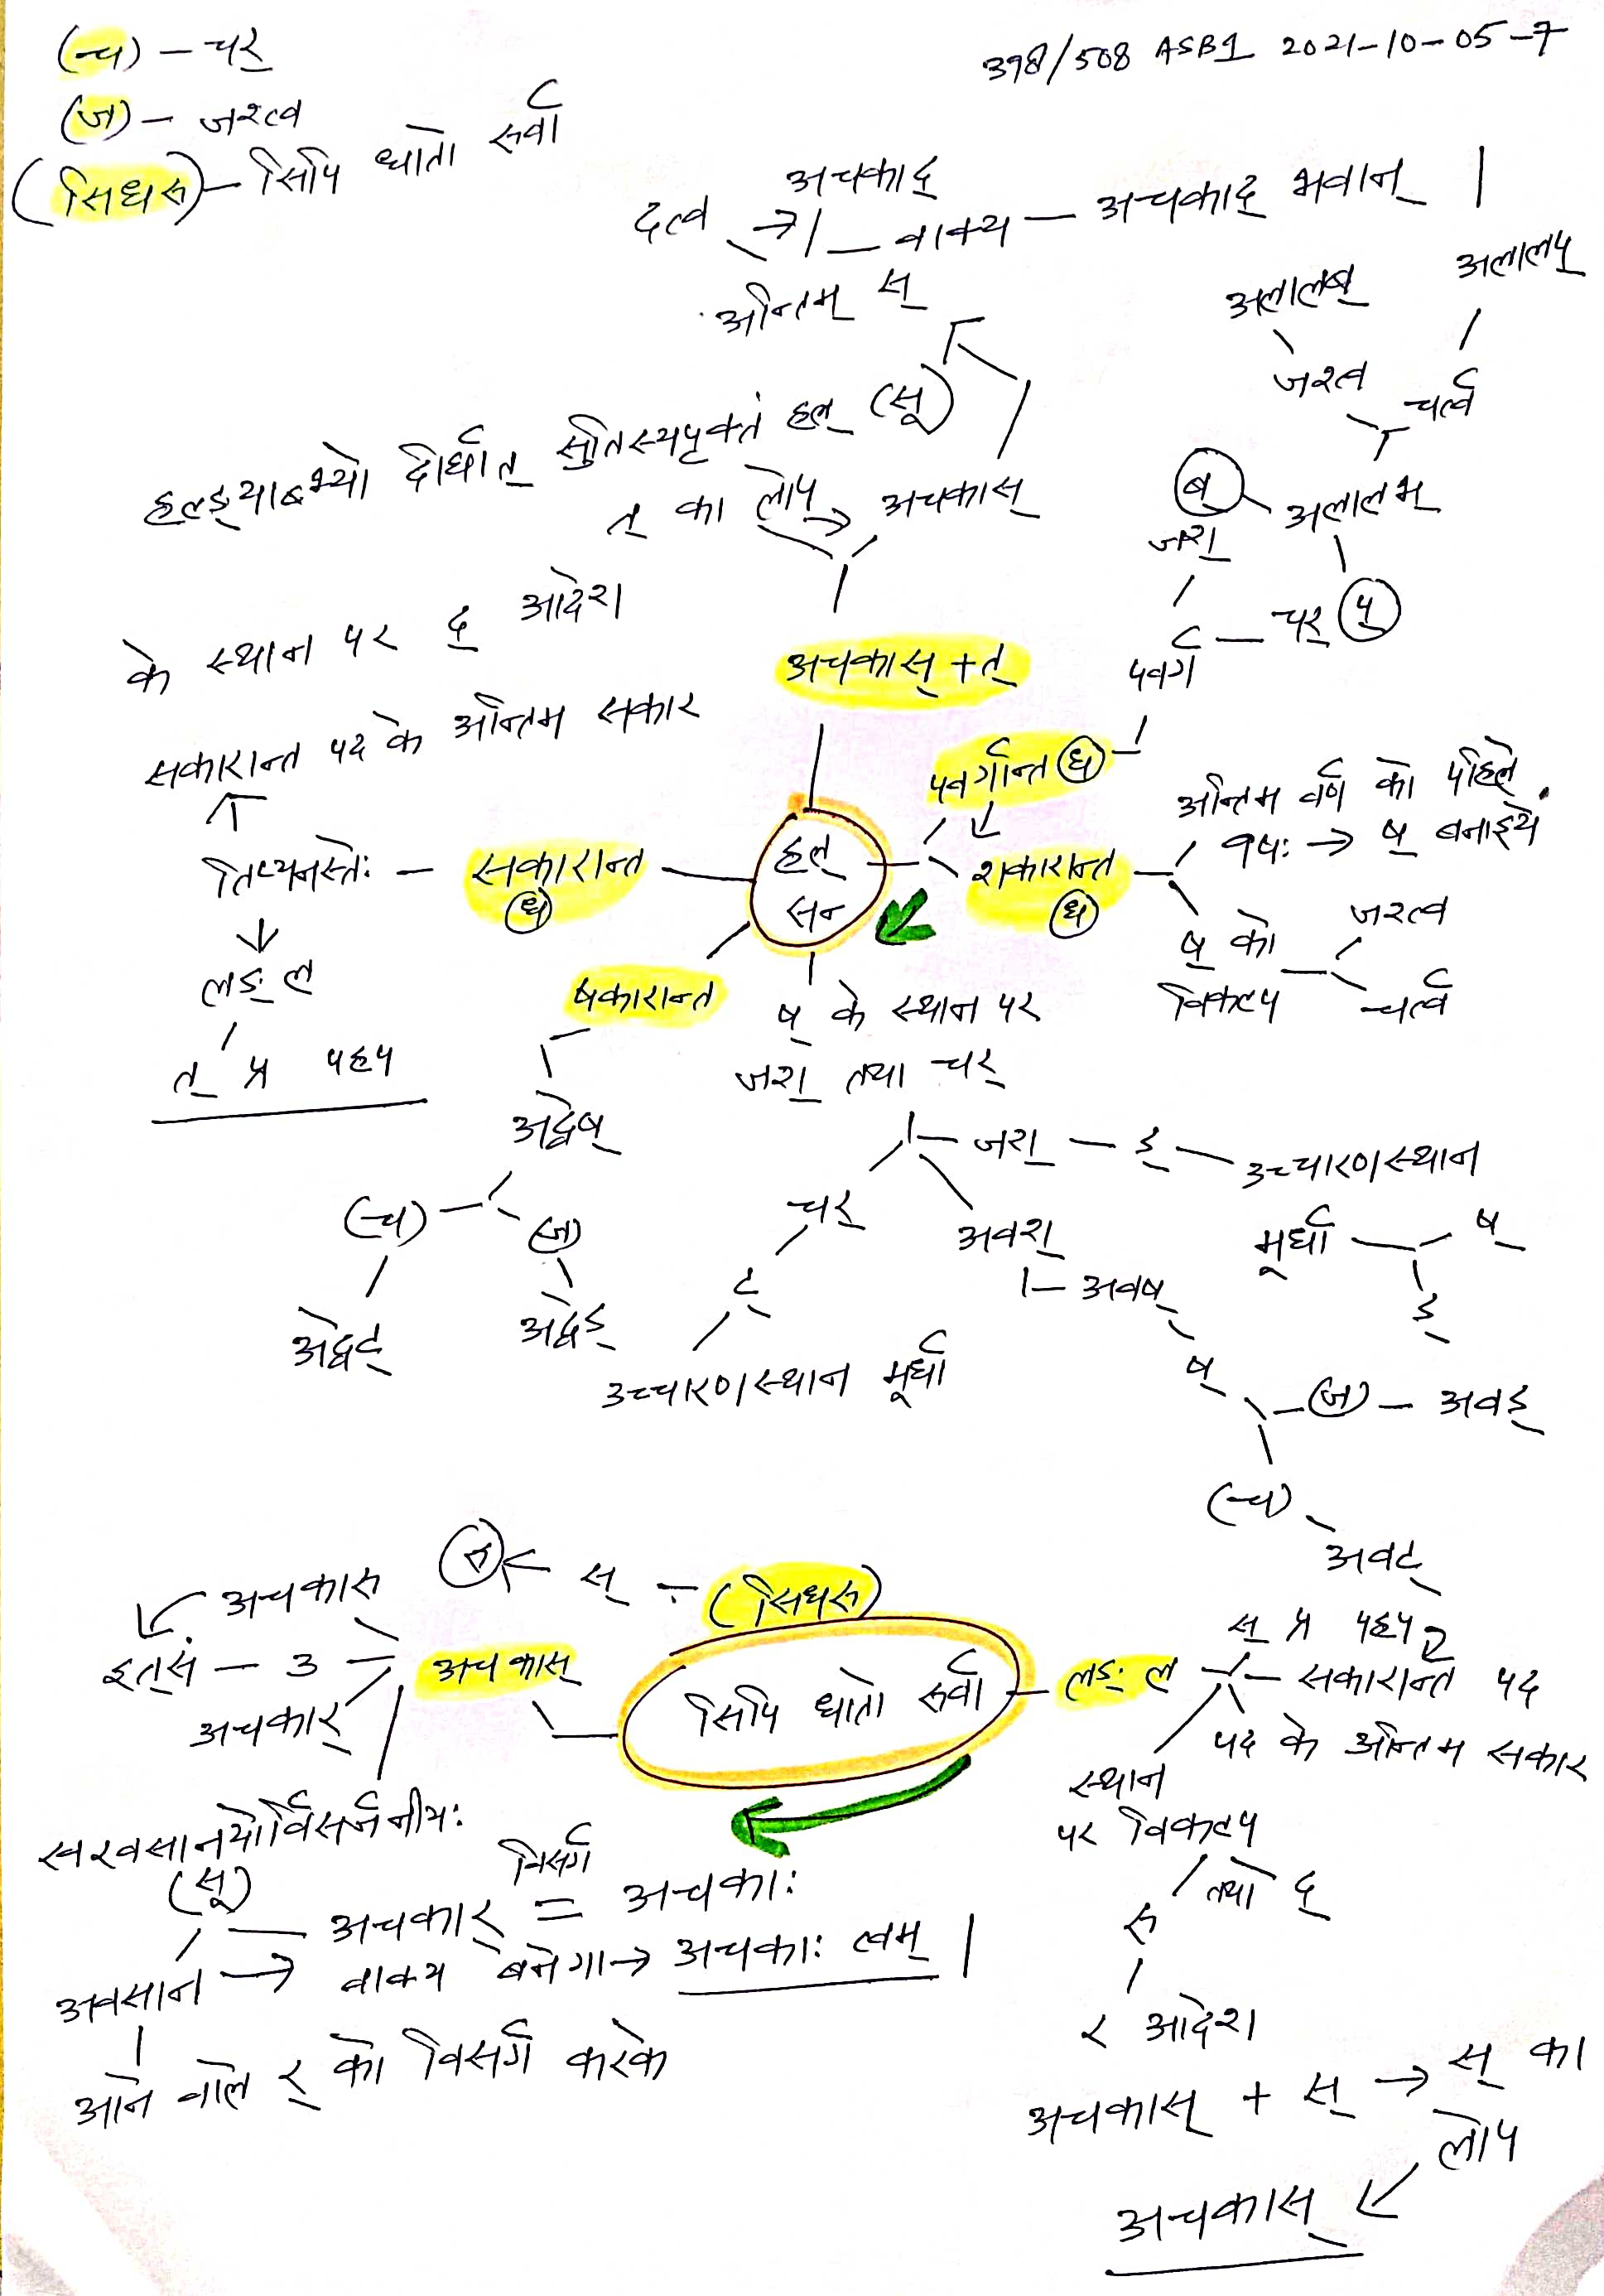 (च) – चर्
398/508 ASB1 2021-10-05-7
(ज) – जश्त्व
(सिधरु) – सिपि धातो रुर्वा
अचकाद्
दत्व → | – वाक्य – अचकाद् भवान् |
अन्तिम् स्
अलालब्
अलालप्
जश्त्व
चर्त्व
हल्ङ्याब्भ्यो दीर्घात् सुतिस्यपृक्तं हल् (सू)
त् का लोप् → अचकास्
ब्
अलालभ्
जश्
के स्थान पर द् आदेश
चर् प्
पवर्ग
अचकास् + त्
सकारान्त पद के अन्तिम सकार
पवर्गान्त (धे)
अन्तिम वर्ण को पहिले
व्रश्चः → ष् बनाइये
तिप्यनस्तेः – सकारान्त
(धे)
हल्
सन्
शकारान्त
(धे)
लङ् ल
ष् को
विकल्प
जश्त्व
चर्त्व
षकारान्त
ष् के स्थान पर
त् प्र पहप
जश् तथा चर्
अद्वेष्
जश् – ड् – उच्चारणस्थान
(च)
(ज)
चर्
अवश्
मूर्धा
ष्
ड्
अवष्
ट्
अद्वेट्
अद्वेड्
उच्चारणस्थान मूर्धा
ष्
(ज) – अवड्
(च)
अवट्
रु ← स् – (सिधरु)
अचकारु
इत्सं – उ – अचकास्
अचकार्
सिपि धातो रुर्वा
लङ् ल
स् प्र पहप
सकारान्त पद
पद के अन्तिम सकार
स्थान
पर विकल्प
खरवसानयोर्विसर्जनीयः
(सू)
विसर्ग
अचकार् = अचकाः
तथा द्
रु
अवसान → वाक्य बनेगा → अचकाः त्वम् |
र आदेश
आने वाले र् को विसर्ग करके
अचकास् + स् → स् का
लोप
अचकास्